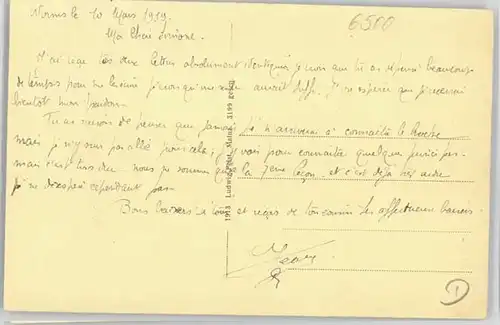 Worms le 10 Mars 1919.
6500
Ma Chère Simone.
J'ai reçu tes deux lettres absolument identiques je crois que tu as dépensé beaucoup
de temps pour me je crois qu'une seule aurait suffi. Je espère que je recevrai
bientôt mon pardon.
Tu as raison de penser que jamais je n'arriverai à connaître le boche
mais je n'y suis pas allé pour cela; j'y vais pour connaître quelque
mais c'est très dur nous ne sommes qu'à la 7ème leçon et c'est déjà très
je ne désespère cependant pas
Bons baisers à tous et reçois de ton cousin les affectueux baisers
Jean
1913 Ludwig Mainz. 3199 gesch
1